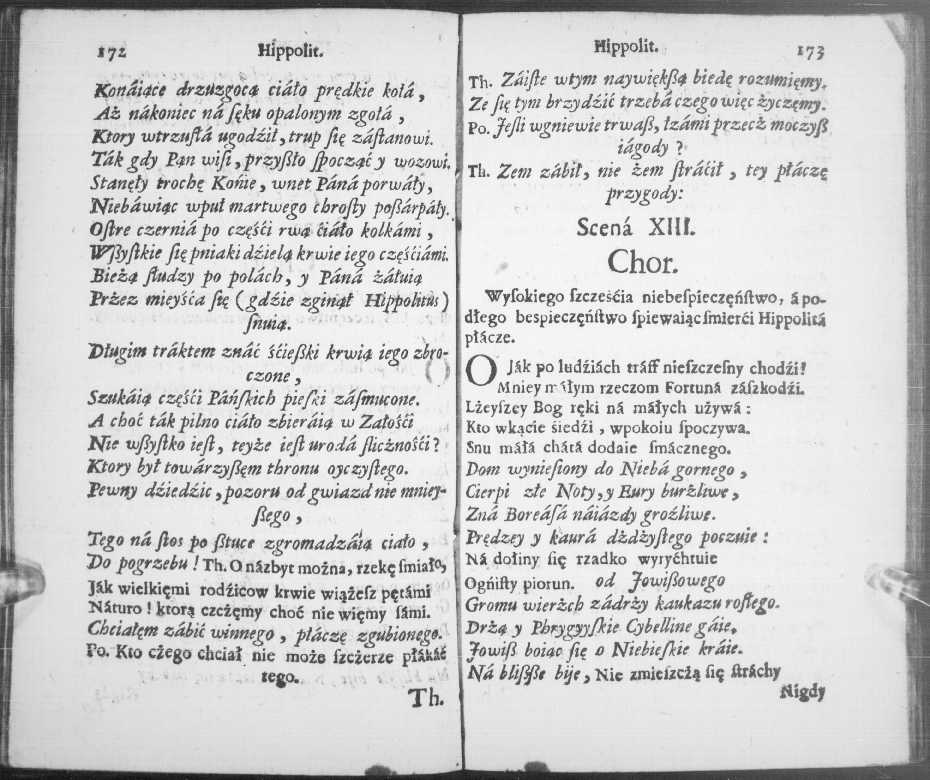 172 Hippolit.
Konáiące drzuzgocą ciáło prędkie kołá,
Aż nákoniec ná sęku opalonym zgołá,
Ktory wtrzustá ugodźił, trup się zástanowi.
Ták gdy Pąn wisi, przyßło spocząć y wozowi.
Stanęły trochę Konie, wnet Páná porwáły,
Niebáwiąc wpuł martwego chrosty poßárpáły.
Ostre czerniá po częśći rwą ciáło kolkámi,
Wßystkie się pniaki dźielą krwie iego częśćiámi.
Bieżą słudzy po polách, y Páná żáłuią
Przez mieyśća się (gdzie zginął Hippolitus)
snuią.
Długim tráktem znáć śćießki krwią iego zbro-
czone,
Szukáią częśći Páńskich pieski zásmucone.
A choć ták pilno ciáło zbieráią w Załośći
Nie wßystko iest, teyże iest urodá sliczności?
Ktory był towárzyßęm thronu oyczystego.
Pewny dźiedźic, pozoru od gwiazd nie mniey-
ßego,
Tego ná stos po ßtuce zgromadzáią ciało,
Do pogrzebu! Th. O názbyt można, rzekę śmiało,
Ják wielkięmi rodźicow krwie wiążesz pętámi
Náturo! ktorą czcżęmy choć nie więmy sámi.
Chciałęm zábić winnego, płáczę zgubionego.
Po. Kto cżego chciał nie może szcżerze płákáć
tego.
Th.
Hippolit. 173
Th. Záiste wtym naywiękßą biedę rozumięmy.
Ze się tym brzydźić trzebá czego więc życzęmy.
Po. Jesli wgniewie trwaß, łzámi przecż moczyß
iágody?
Th. Zem zábił, nie żem stráćił, tey płáczę
przygody:
Scená XIII.
Chor.
Wysokiego szcześćia niebespieczęństwo, á po-
dłego bespieczęństwo spiewaiąc smierći Hippolitá
płácze.
O Ják po ludźiách tráff nieszczesny chodźi!
Mniey małym rzeczom Fortuná zászkodźi.
Lżeyszey Bog ręki ná máłych używá:
Kto wkącie śiedźi, wpokoiu spoczywa.
Snu máłá chátá dodaie smácznego.
Dom wyniesiony do Niebá gornego,
Cierpi złe Noty, y Eury burżliwe,
Zná Boreásá náiázdy groźliwe.
Prędzey y kaurá dżdżystego poczuie:
Ná doliny się rzadko wyryćhtuie
Ogńisty piorun. od Jowißowego
Gromu wierżch zádrży kaukazu rostego.
Drżą y Phrygyyskie Cybelline gáie,
Jowiß boiąc się o Niebieskie kráie.
Ná blißße bije, Nie zmieszcżą się stráchy
Nigdy